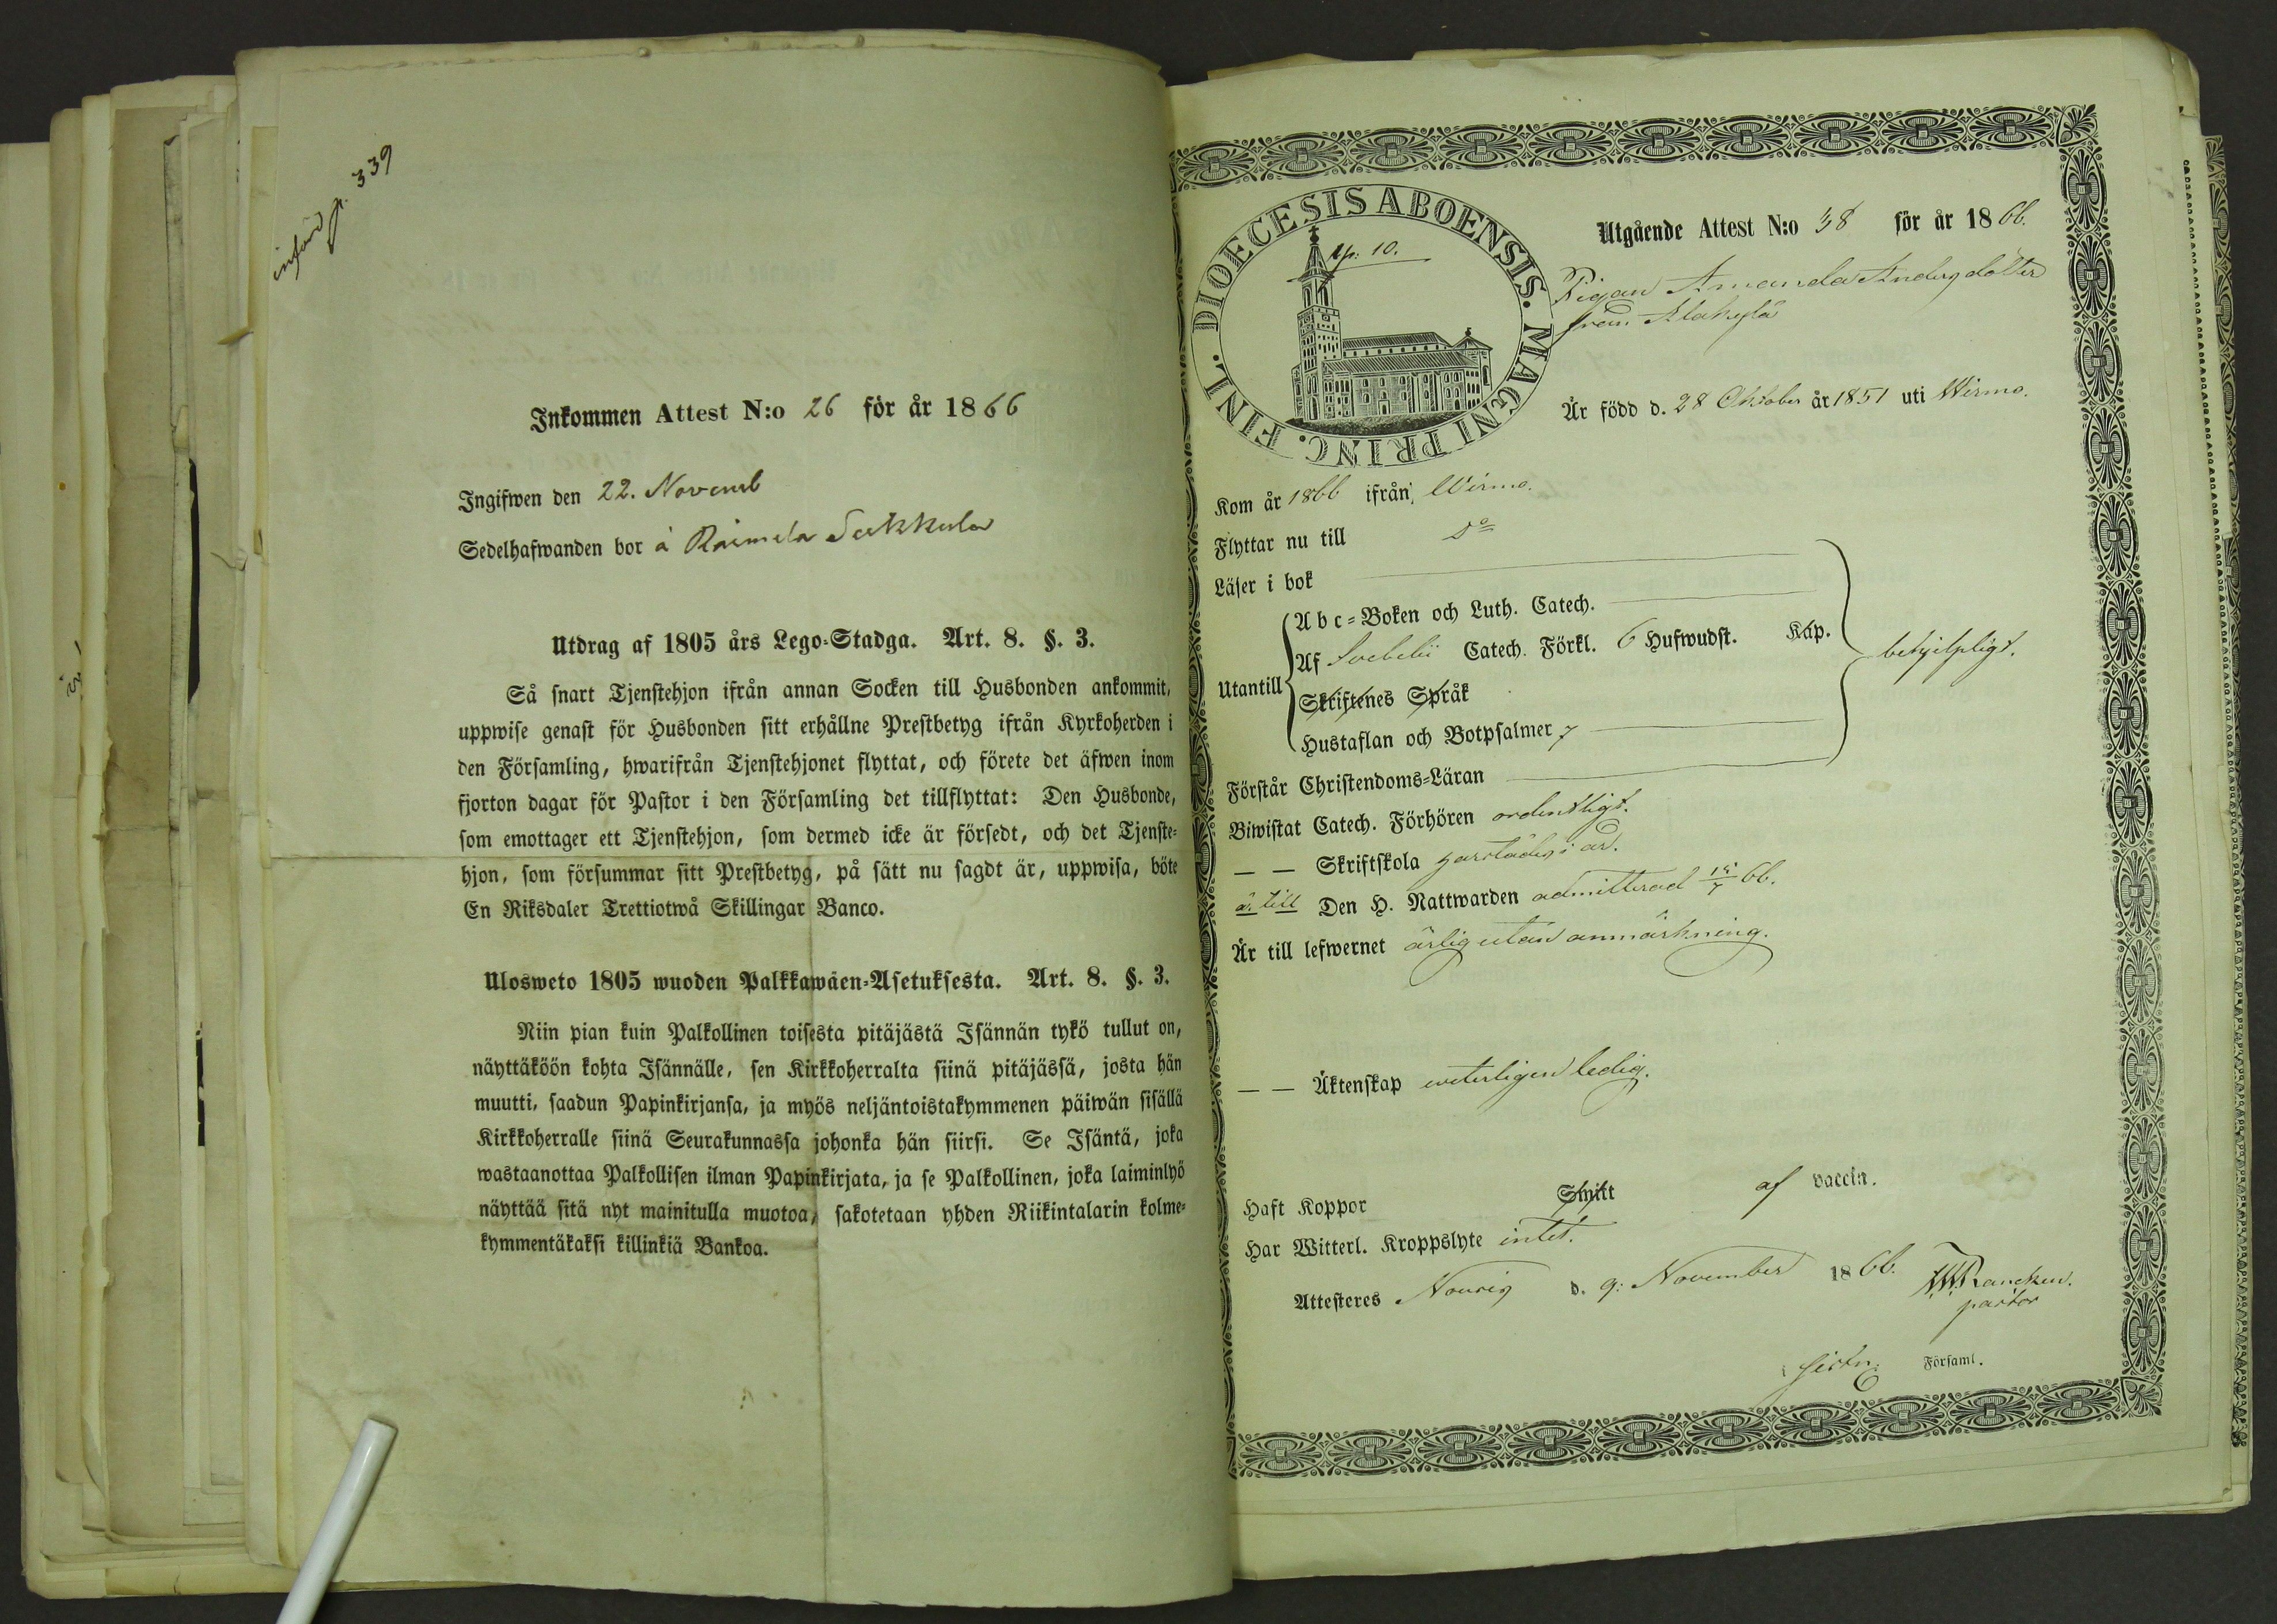 införd p. 339
Inkommen Attest N:o 26 för år 1866
Ingifwen den 22. Novemb
Sedelhafwanden bor å Raimela Sukkula
Utdrag af 1805 års Lego-Stadga. Art. 8. §. 3.
Så snart Tjenstehjon ifrån annan Socken till Husbonden ankommit,
uppwise genast för Husbonden sitt erhållne Prestbetyg ifrån Kyrkoherden i
den Församling, hwarifrån Tjenstehjonet flyttat, och förete det äfwen inom
fjorton dagar för Pastor i den Församling det tillflyttat: Den Husbonde,
som emottager ett Tjenstehjon, som dermed icke är försedt, och det Tjenste-
hjon, som försummar sitt Prestbetyg, på sätt nu sagdt är, uppwisa, böte
En Riksdaler Trettiotwå Skillingar Banco.
Ulosweto 1805 wuoden Palkkawäen-Asetuksesta. Art. 8. §. 3.
Niin pian kuin Palkollinen toisesta pitäjästä Isännän tykö tullut on,
näyttäköön kohta Isännälle, sen Kirkkoherralta siinä pitäjässä, josta hän
muutti, saadun Papinkirjansa, ja myös neljäntoistakymmenen päiwän sisällä
Kirkkoherralle siinä Seurakunnassa johonka hän siirsi. Se Isäntä, joka
wastaanottaa Palkollisen ilman Papinkirjata, ja se Palkollinen, joka laiminlyö
näyttää sitä nyt mainitulla muotoa, sakotetaan yhden Riikintalarin kolme-
kymmentäkaksi killinkiä Bankoa.
DIOECESIS ABOENSIS. MAGNI PRINC. FINL.
10.
Utgående Attest N:o 38 för år 1866.
Pigan Amanda Andersdotter
från Alakylä
Är född d. 28 Oktober år 1851 uti Wirmo.
Kom år 1866 ifrån Wirmo.
Flyttar nu till do
Läser i bok
Utantill
Abc-Boken och Luth. Catech.
Af Svebelii Catech. Förkl. 6 Hufwudst. Kap.
Skriftenes Språk
Hustaflan och Botpsalmer 7
behjelpligt.
Förstår Christendoms-Läran
Biwistat Catech. Förhören ordentligt.
— — Skriftskola härstädes i år.
är till Den H. Nattwarden admitterad 15/7 66.
Är till lefwernet ärlig utan anmärkning.
— — Äktenskap veterligen ledig.
Haft Koppor Skytt af vaccin.
Har Witterl. Kroppslyte intet.
Attesteres Nousis d. 9: November 1866.
Rancken.
pastor
Församl.